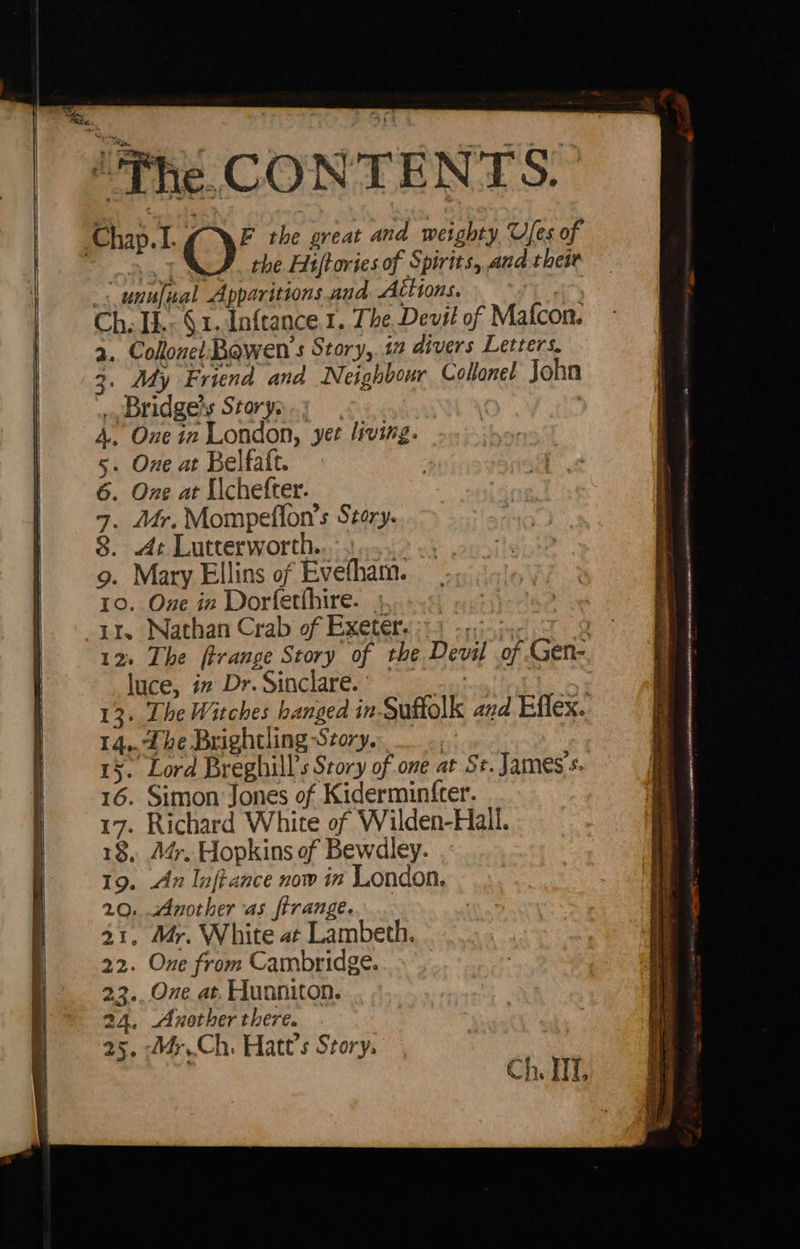 The CONTENTS.
Chap. I. OF the great and weighty Uſes of
the Hiſtories of Spirits, and their
unuſual Apparitions and Actions.
Ch. II. §1. Inſtance 1. The Devil of Maſcon.
2. Collonel Bowen's Story, in divers Letters.
3. My Friend and Neighbour Collonel John
Bridge's Story.
4. One in London, yet living.
5. One at Belfaſt.
6. One at Ilcheſter.
7. Mr. Mompeſſon's Story.
8. At Lutterworth.
9. Mary Ellins of Eveſham.
10. One in Dorſetſhire.
11. Nathan Crab of Exeter.
12. The ſtrange Story of the Devil of Gen-
luce, in Dr. Sinclare.
13. The Witches hanged in Suffolk and Eſſex.
14. The Brightling-Story.
15. Lord Breghill's Story of one at St. James's.
16. Simon Jones of Kiderminſter.
17. Richard White of Wilden-Hall.
18. Mr. Hopkins of Bewdley.
19. An Inſtance now in London.
20. Another as ſtrange.
21. Mr. White at Lambeth.
22. One from Cambridge.
23. One at Hunniton.
24. Another there.
25. Mr. Ch. Hatt's Story.
Ch. III.